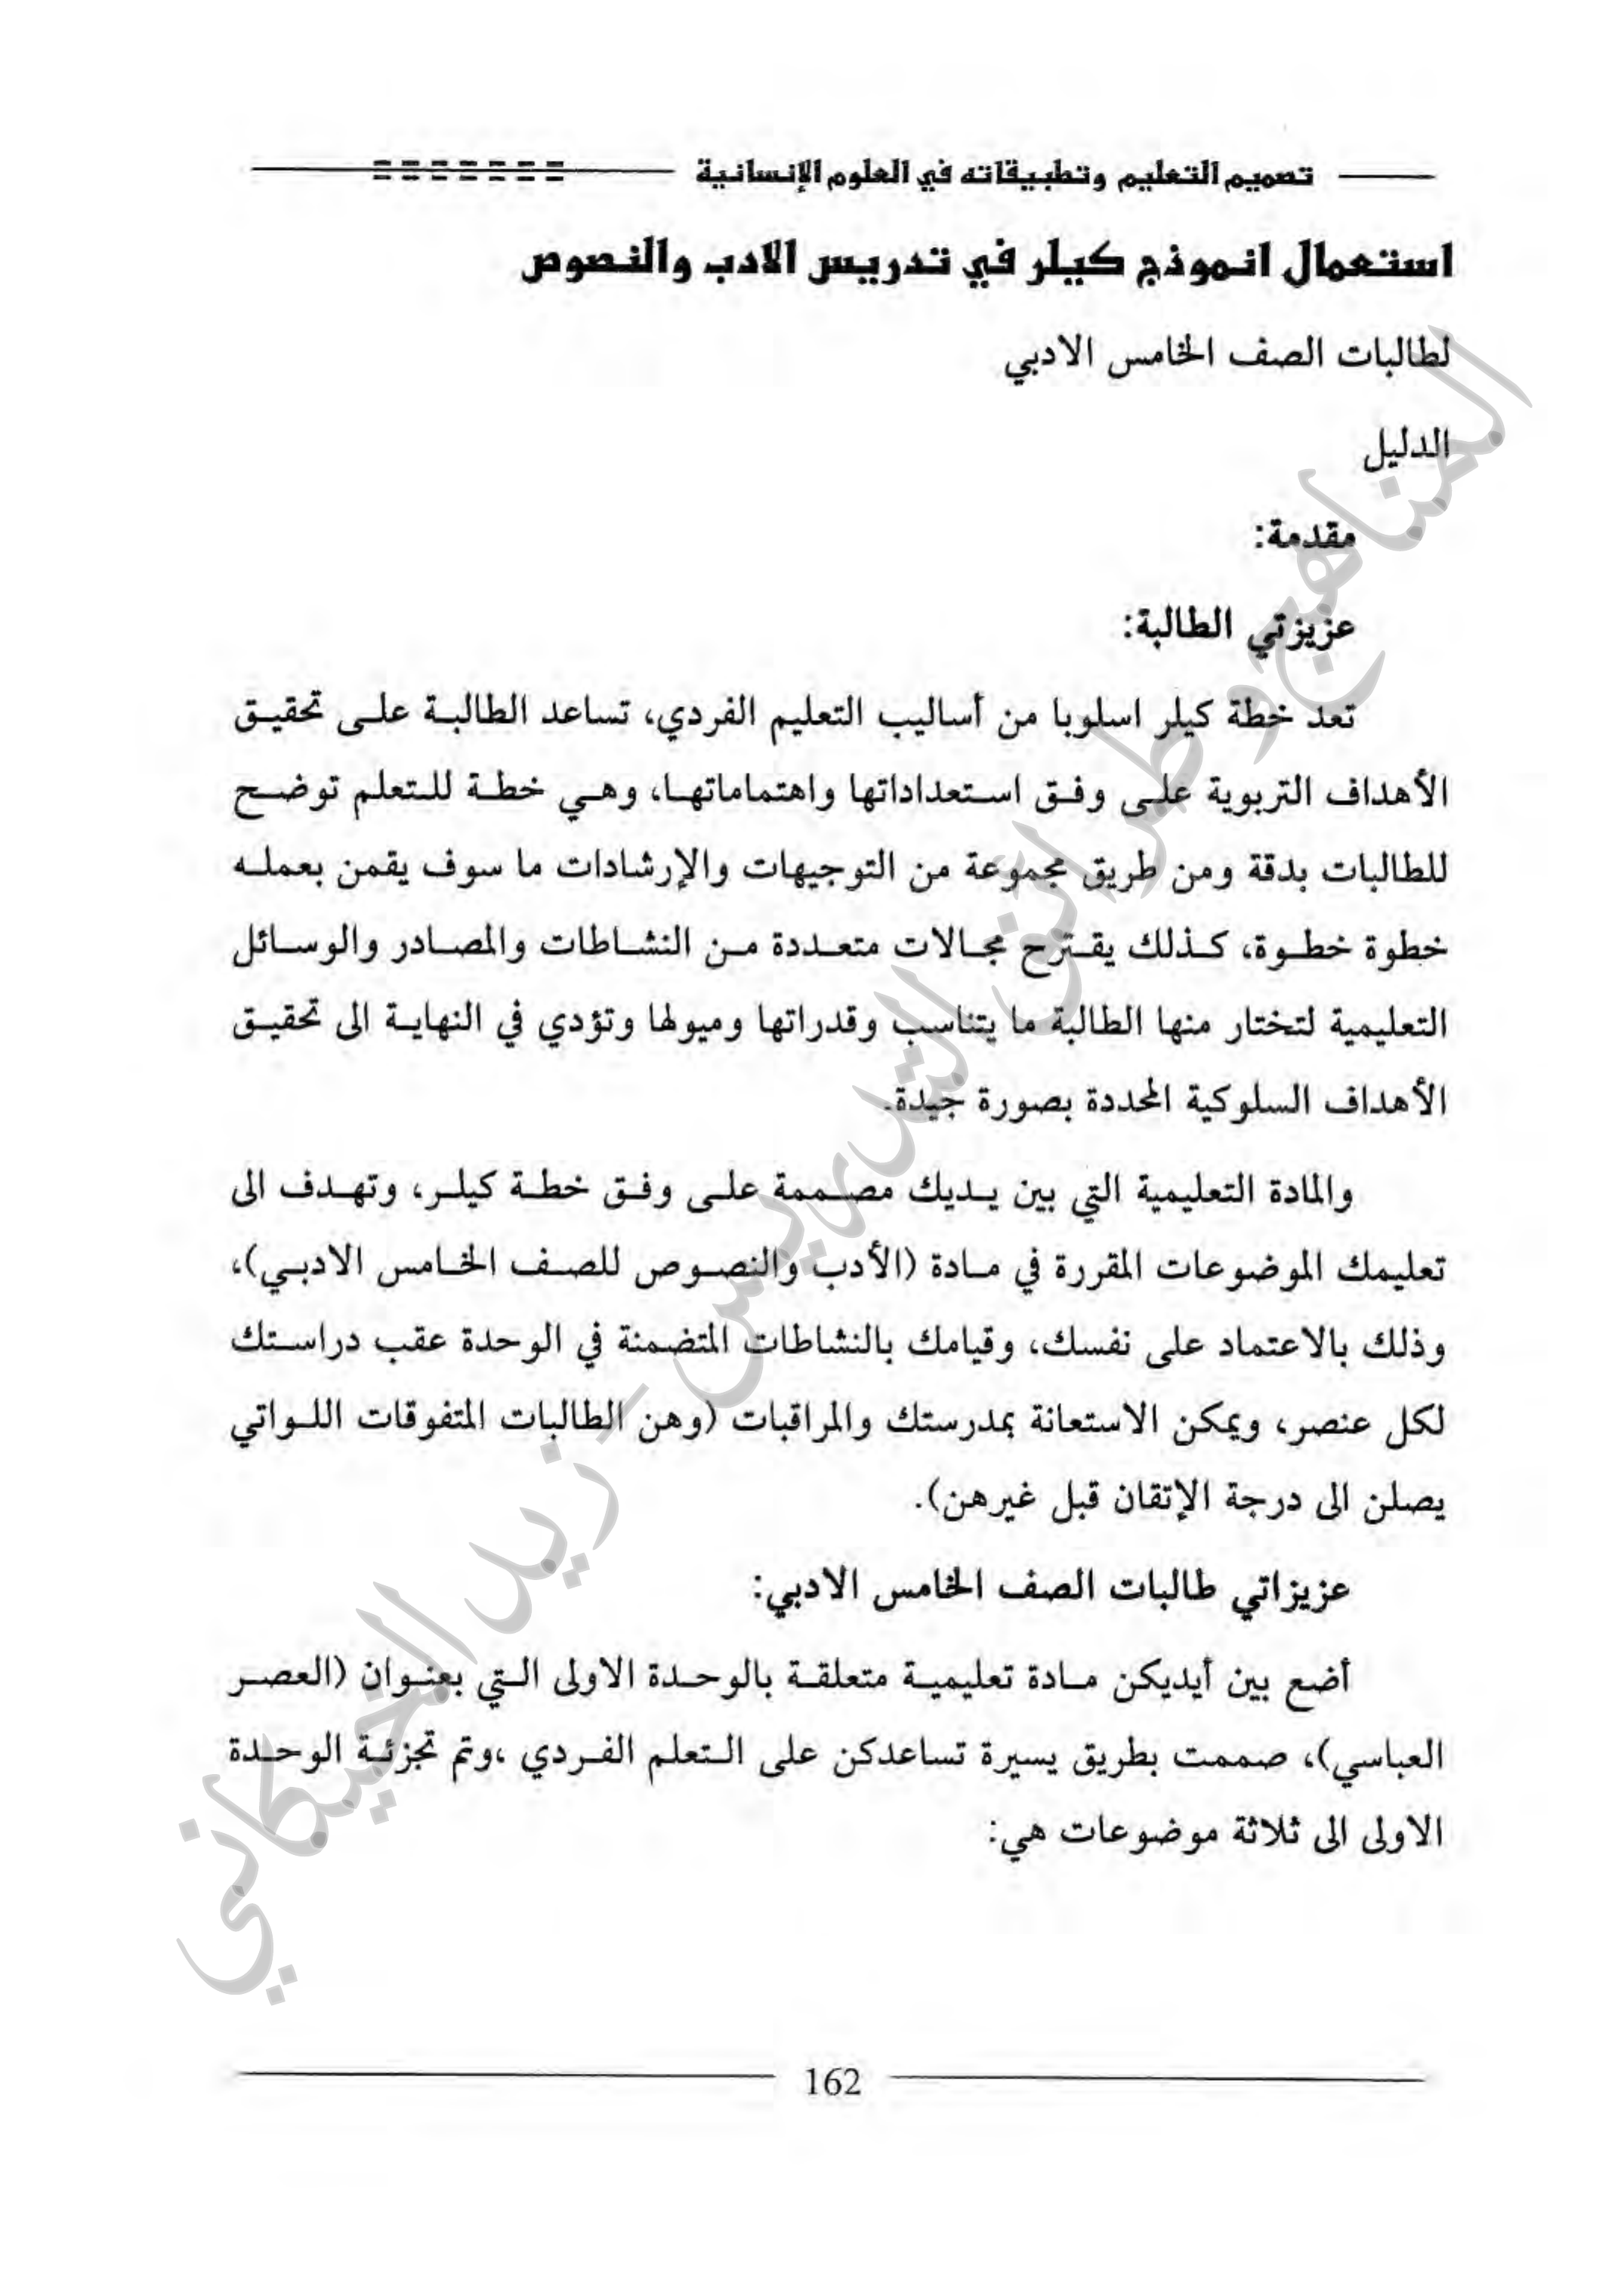 تصميم التعليم وتطبيقاته في العلوم الإنسانية
استعمال انموذج كيلر في تدريس الادب والنصوص
لطالبات الصف الخامس الادبي
الدليل
مقدمة:
عزيزتي الطالبة:
تعد خطة كيلر اسلوبا من أساليب التعليم الفردي، تساعد الطالبة على تحقيق
الأهداف التربوية على وفق استعداداتها واهتماماتها، وهي خطة للتعلم توضح
للطالبات بدقة ومن طريق مجموعة من التوجيهات والإرشادات ما سوف يقمن بعمله
خطوة خطوة، كذلك يقترح مجالات متعددة من النشاطات والمصادر والوسائل
التعليمية لتختار منها الطالبة ما يتناسب وقدراتها وميولها وتؤدي في النهاية الى تحقيق
الأهداف السلوكية المحددة بصورة جيدة.
والمادة التعليمية التي بين يديك مصممة على وفق خطة كيلر، وتهدف الى
تعليمك الموضوعات المقررة في مادة (الأدب والنصوص للصف الخامس الادبي)،
وذلك بالاعتماد على نفسك، وقيامك بالنشاطات المتضمنة في الوحدة عقب دراستك
لكل عنصر، ويمكن الاستعانة بمدرستك والمراقبات (وهن الطالبات المتفوقات اللواتي
يصلن الى درجة الإتقان قبل غيرهن).
عزيزاتي طالبات الصف الخامس الادبي:
أضع بين أيديكن مادة تعليمية متعلقة بالوحدة الاولى التي بعنوان (العصر
العباسي)، صممت بطريق يسيرة تساعدكن على التعلم الفردي ،وتم تجزئة الوحدة
الاولى الى ثلاثة موضوعات هي:
162
المناهج وطرائق التدريس - زيد الخيكاني